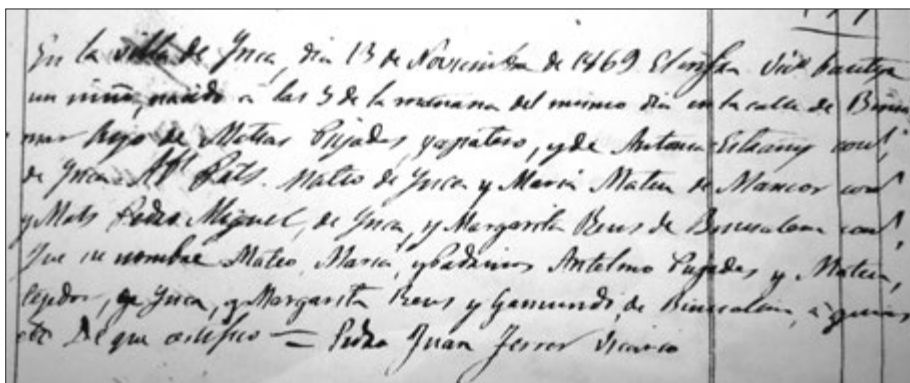 En la villa de Ynca, dia 13 de Noviembre de 1869 El infro Vicº bautizé
un niño, nacido á las 3 de la mañana del mismo dia en la calle de
hijo de Mateo Pujades, zapatero, y de Antonia Estrany cons!
de Ynca. Ab! Pats. Mateo de Ynca y Maria Mateu de Mancor cons!
y Mats Pedro Miguel, de Ynca, y Margarita Beus de Binisalem cons!
Fue su nombre Mateo, Maria, y Padrinos Antelmo Pujades y Mateu,
tejedor, de Ynca, y Margarita Beus y Gamundi, de Binisalem, á quienes
etc De que certifico = Pedro Juan Ferrer Vicario